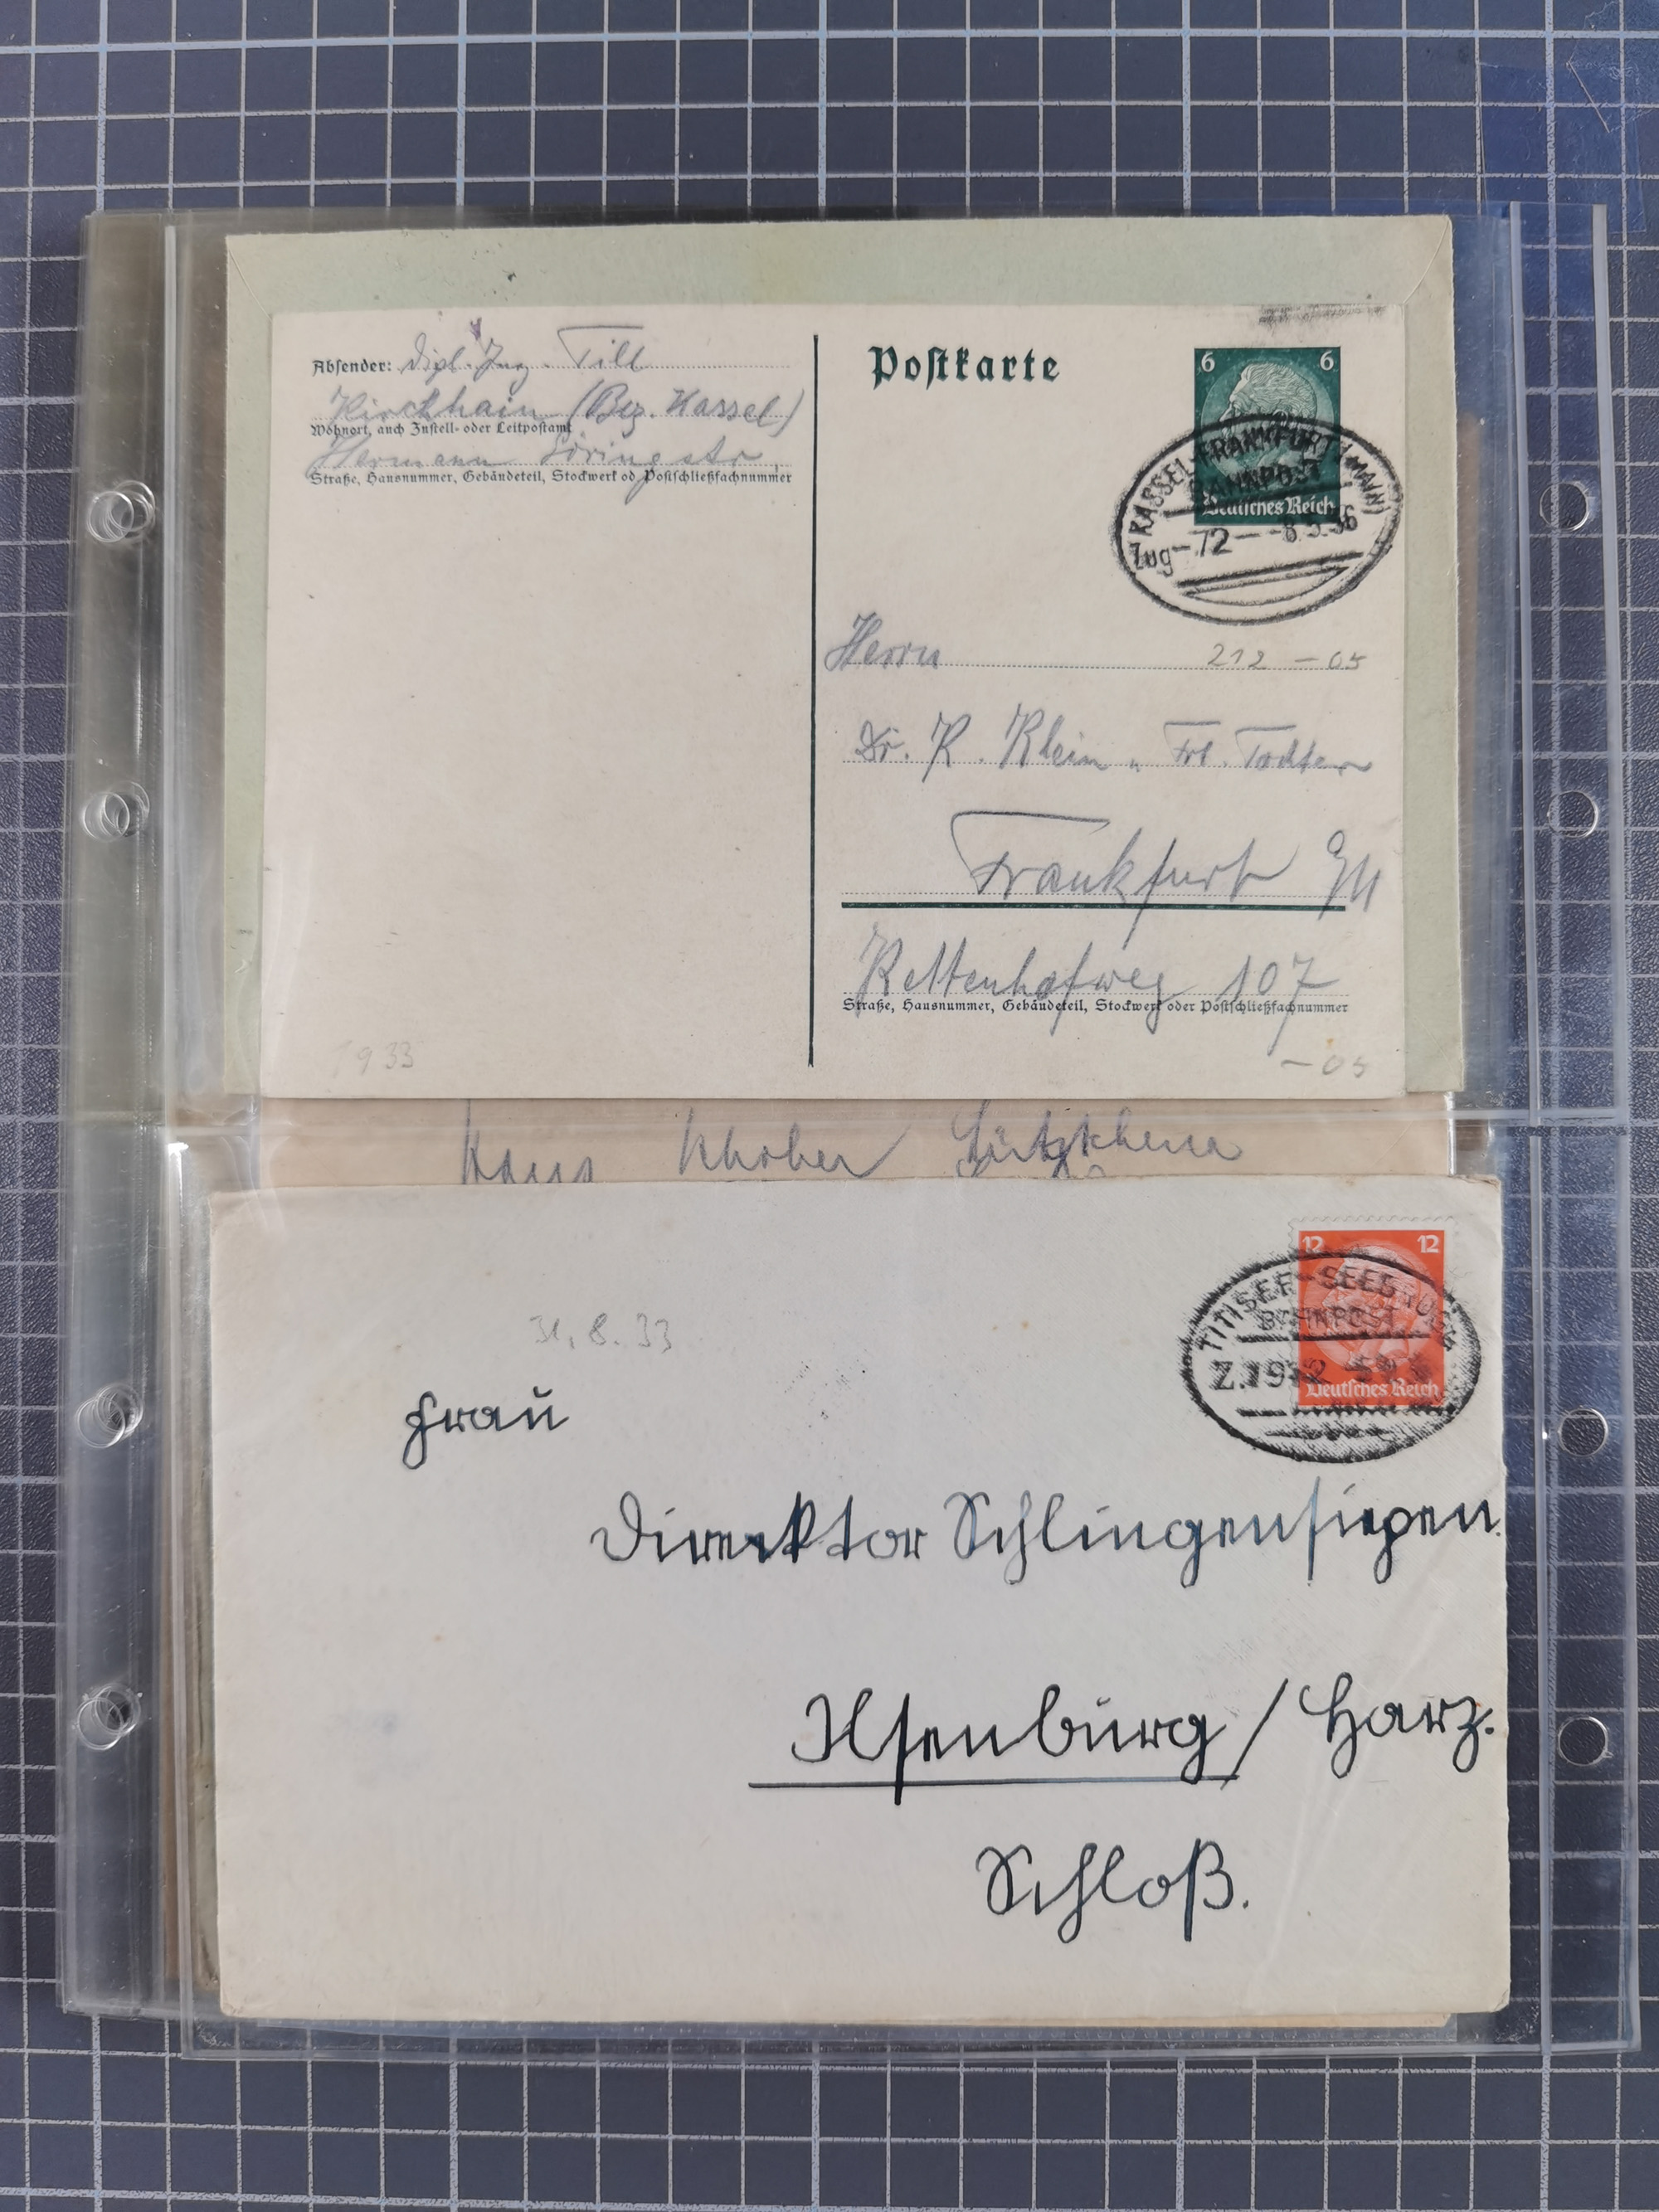 Absender: Dipl. Ing. Till
Kirchhain (Bez. Kassel)
Wohnort, auch Zustell- oder Leitpostamt
Hermann Göringstr.
Straße, Hausnummer, Gebäudeteil, Stockwerk od. Postschließfachnummer
Postkarte
6 6
Deutsches Reich
KASSEL-FRANKFURT (MAIN)
BAHNPOST
Zug-72- -8.5.36
Herrn
212 -05
Dr. R. Klein
Frankfurt a/M
Kettenhofweg 107
Straße, Hausnummer, Gebäudeteil, Stockwerk oder Postschließfachnummer
1933
-05
Hans
12 12
Deutsches Reich
TITISEE-SEEBRUGG
BAHNPOST
31.8.33
Frau
Direktor Schlingensiepen.
Ilsenburg / Harz.
Schloß.